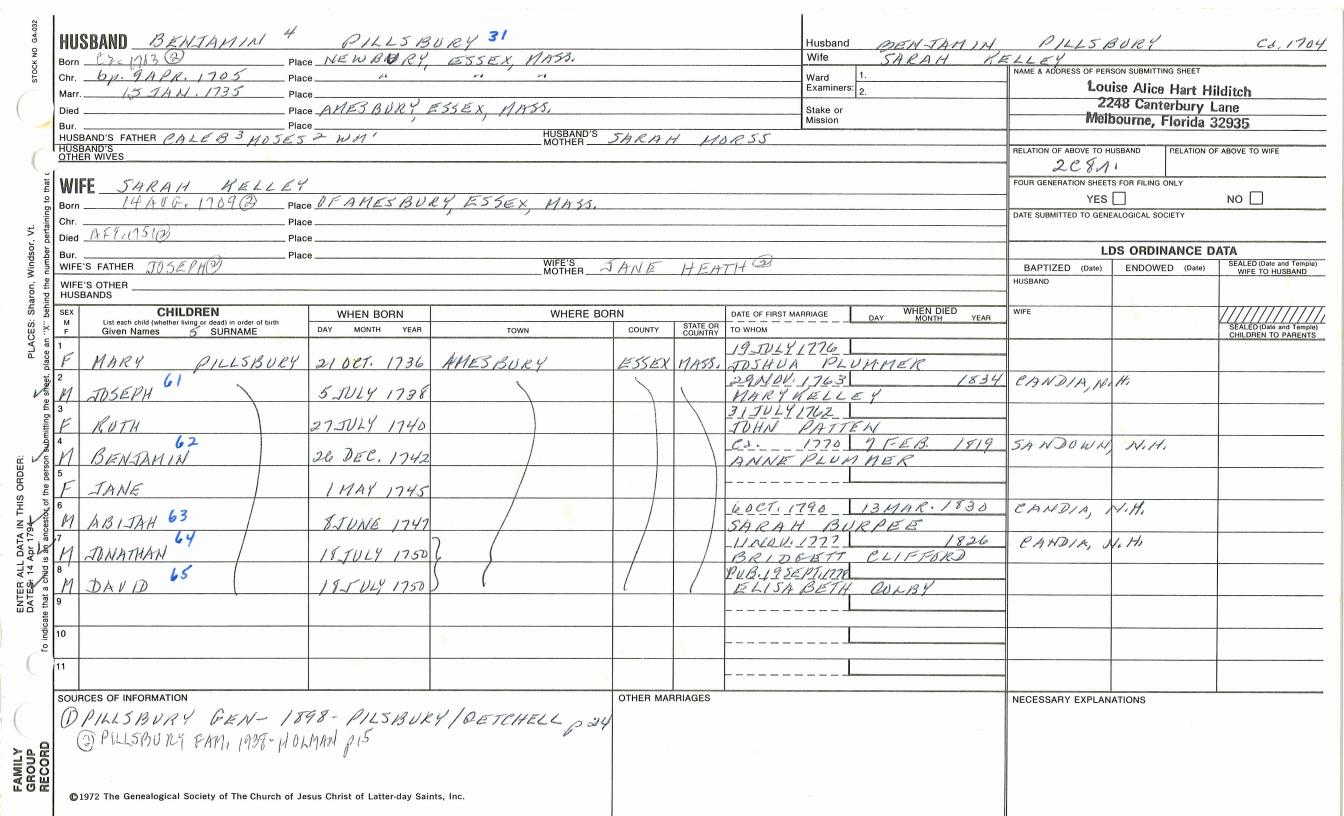 STOCK NO. GA-032
HUSBAND BENJAMIN 4 PILLSBURY 31
Born Ca. 1713 ② Place NEWBURY, ESSEX, MASS.
Chr. bp. 9 APR. 1705 Place " " "
Marr. 15 JAN. 1735 Place
Died Place AMESBURY, ESSEX, MASS.
Bur. Place
HUSBAND'S FATHER CALEB 3 MOSES 2 WM 1 HUSBAND'S MOTHER SARAH MORSS
HUSBAND'S OTHER WIVES
Husband BENJAMIN PILLSBURY Ca. 1704
Wife SARAH KELLEY
Ward Examiners: 1. 2.
Stake or Mission
NAME & ADDRESS OF PERSON SUBMITTING SHEET
Louise Alice Hart Hilditch
2248 Canterbury Lane
Melbourne, Florida 32935
RELATION OF ABOVE TO HUSBAND RELATION OF ABOVE TO WIFE
FOUR GENERATION SHEETS FOR FILING ONLY
YES NO
DATE SUBMITTED TO GENEALOGICAL SOCIETY
WIFE SARAH KELLEY
Born 14 AUG. 1709 ② Place OF AMESBURY, ESSEX, MASS.
Chr. Place
Died AFT. 1751 ② Place
Bur. Place
WIFE'S FATHER JOSEPH ② WIFE'S MOTHER JANE HEATH ②
WIFE'S OTHER HUSBANDS
LDS ORDINANCE DATA
BAPTIZED (Date) ENDOWED (Date) SEALED (Date and Temple) WIFE TO HUSBAND
HUSBAND
WIFE
SEALED (Date and Temple) CHILDREN TO PARENTS
SEX M F CHILDREN WHEN BORN WHERE BORN DATE OF FIRST MARRIAGE WHEN DIED
List each child (whether living or dead) in order of birth
Given Names 5 SURNAME DAY MONTH YEAR TOWN COUNTY STATE OR COUNTRY TO WHOM DAY MONTH YEAR
1 19 JULY 1776
F MARY PILLSBURY 21 OCT. 1736 AMESBURY ESSEX MASS. JOSHUA PLUMMER
2 61 29 NOV. 1763 1834 CANDIA, N.H.
M JOSEPH 5 JULY 1738 MARY KELLEY
3 31 JULY 1762
F RUTH 27 JULY 1740 JOHN PATTEN
4 62 Ca. 1770 7 FEB. 1819 SANDOWN, N.H.
M BENJAMIN 26 DEC. 1742 ANNE PLUMMER
5
F JANE 1 MAY 1745
6 63 6 OCT. 1790 13 MAR. 1830 CANDIA, N.H.
M ABIJAH 8 JUNE 1747 SARAH BURPEE
7 64 11 NOV. 1777 1826 CANDIA, N.H.
M JONATHAN 18 JULY 1750 BRIDGETT CLIFFORD
8 65 PUB. 19 SEPT. 1778
M DAVID 18 JULY 1750 ELISABETH COLBY
9
10
11
SOURCES OF INFORMATION OTHER MARRIAGES NECESSARY EXPLANATIONS
① PILLSBURY GEN- 1898- PILSBURY/GETCHELL p 24
② PILLSBURY FAM. 1938- HOLMAN p15
©1972 The Genealogical Society of The Church of Jesus Christ of Latter-day Saints, Inc.
FAMILY GROUP RECORD
ENTER ALL DATA IN THIS ORDER:
DATES: 14 Apr 1794
PLACES: Sharon, Windsor, Vt.